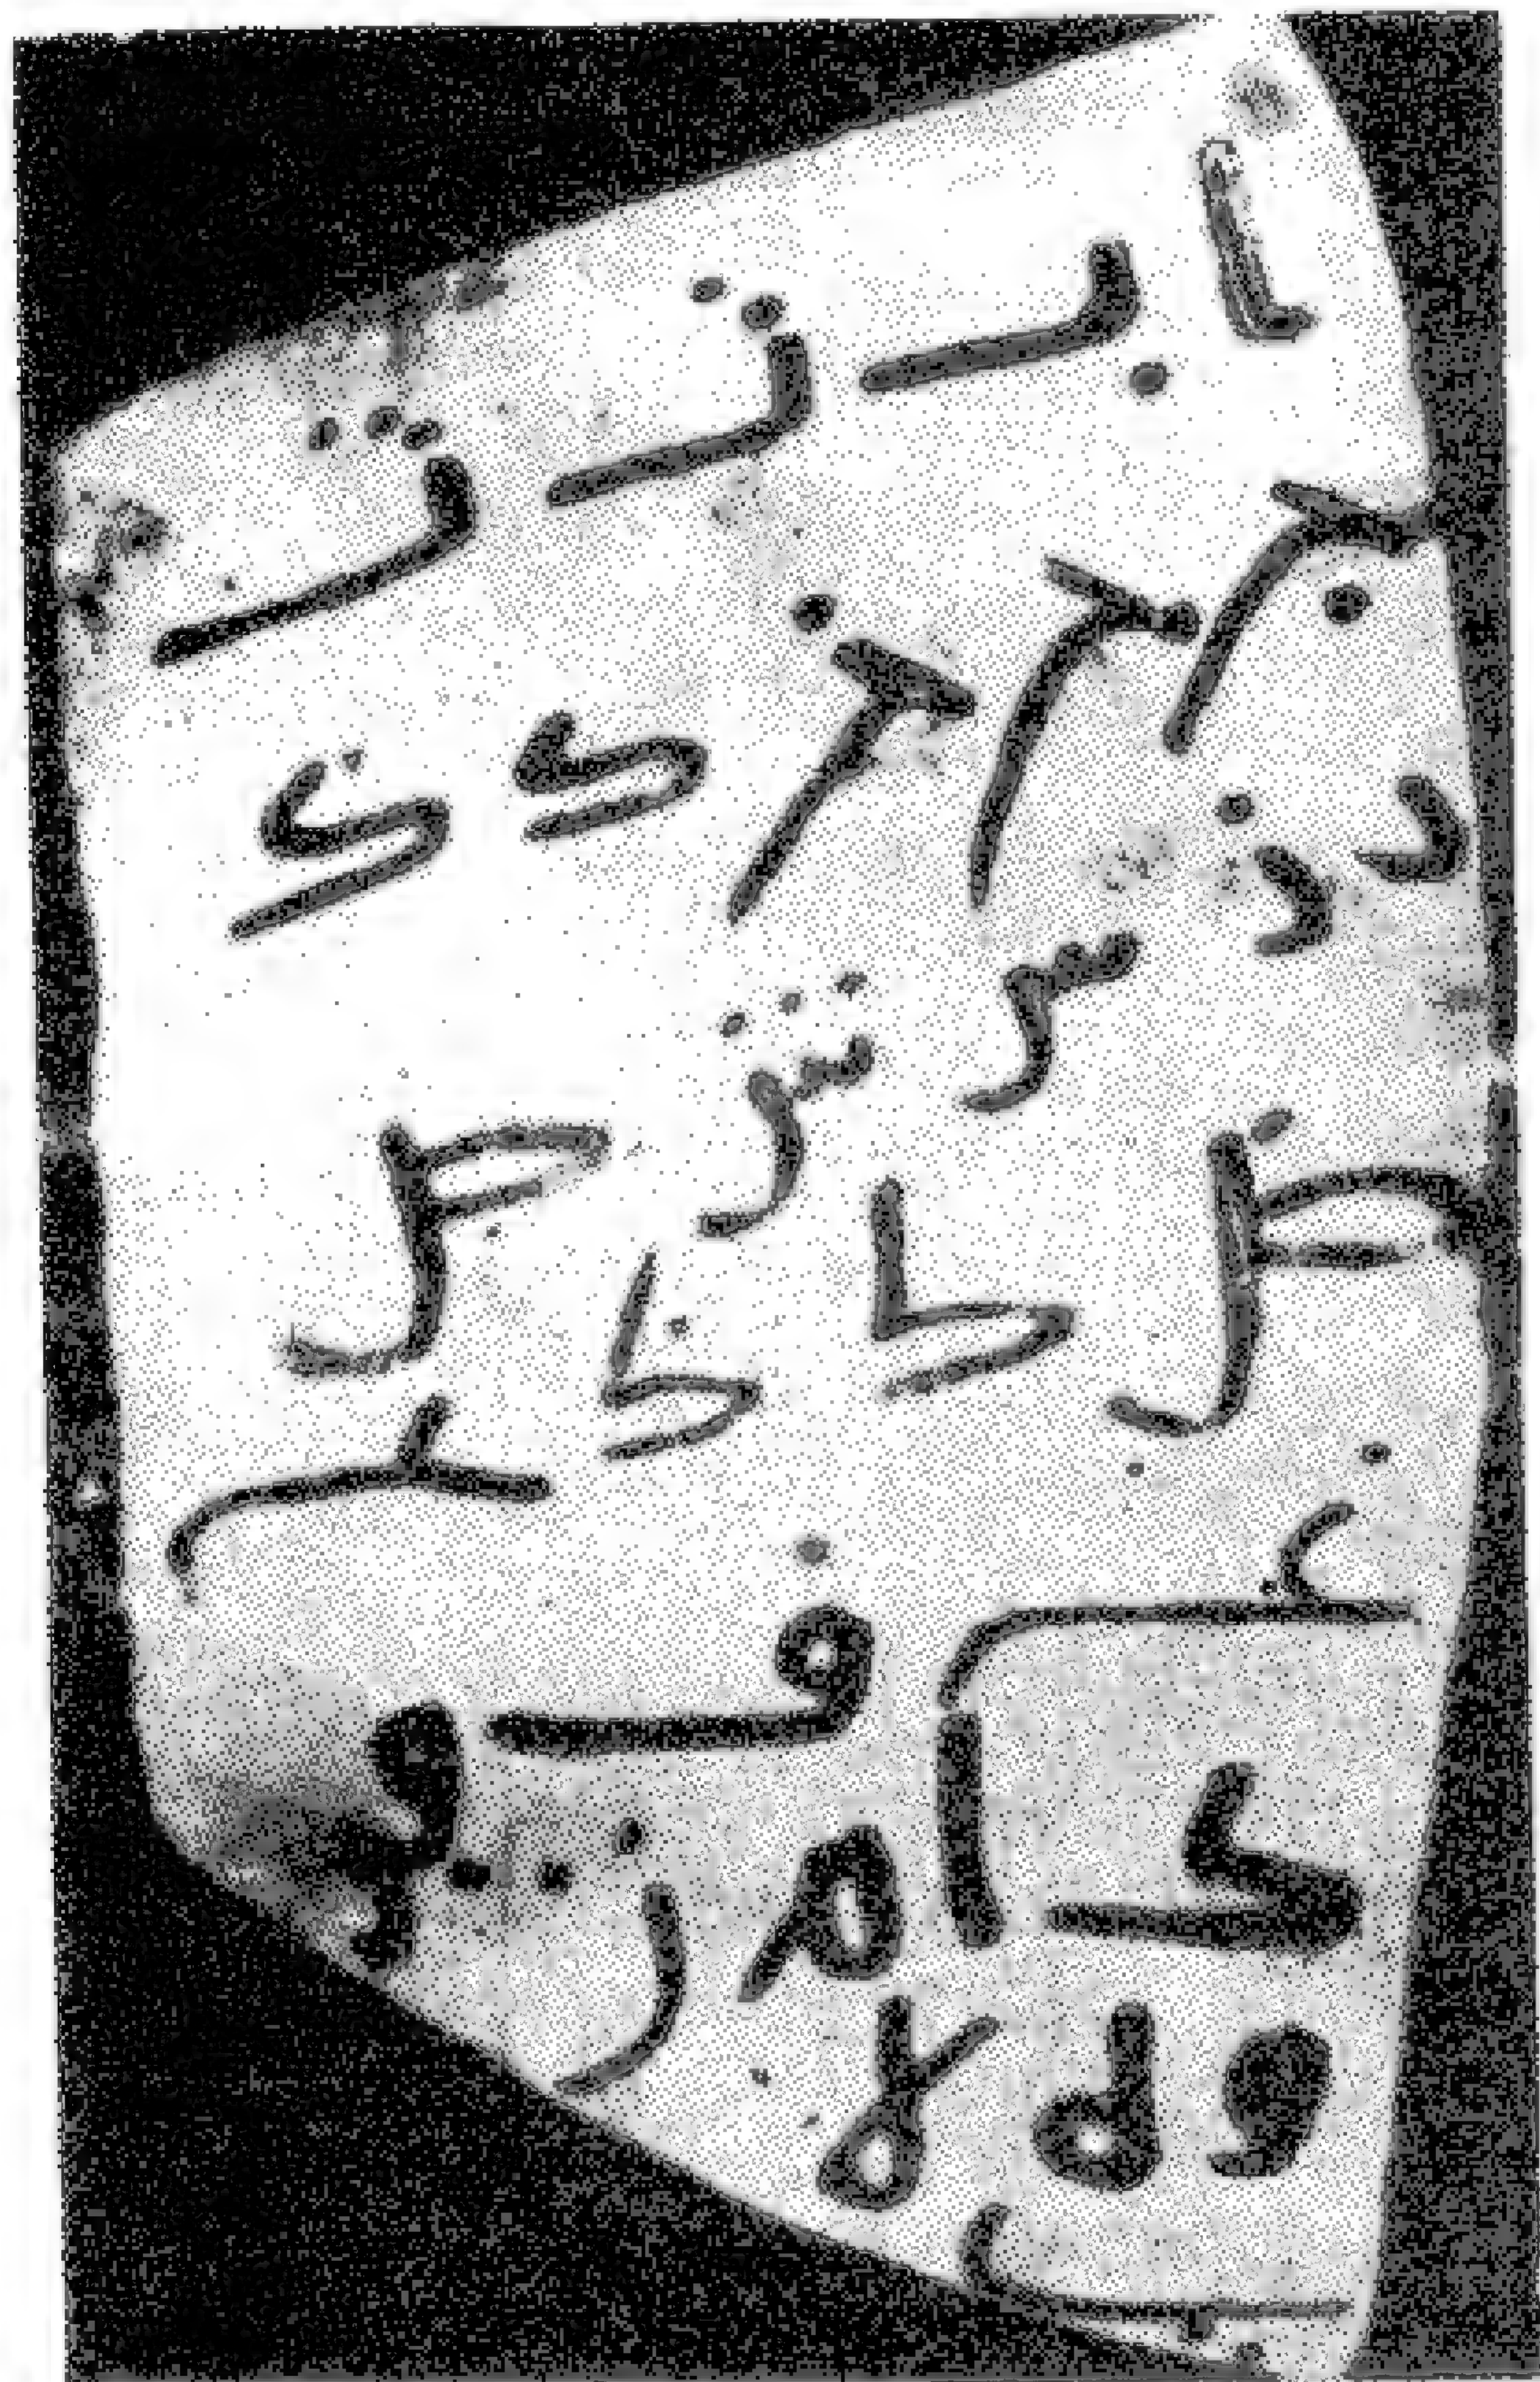 ا ب ت ث
ج ح خ د ذ
ر ز س ش ص
ض ط ظ ع
غ ف ق
ك ل م ن
و ه لا
ي